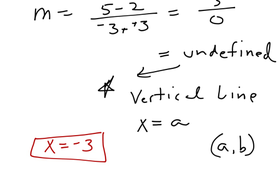 m = 5-2 / -3+3 = 3 / 0
= undefined
Vertical Line
x = a
x = -3
(a,b)